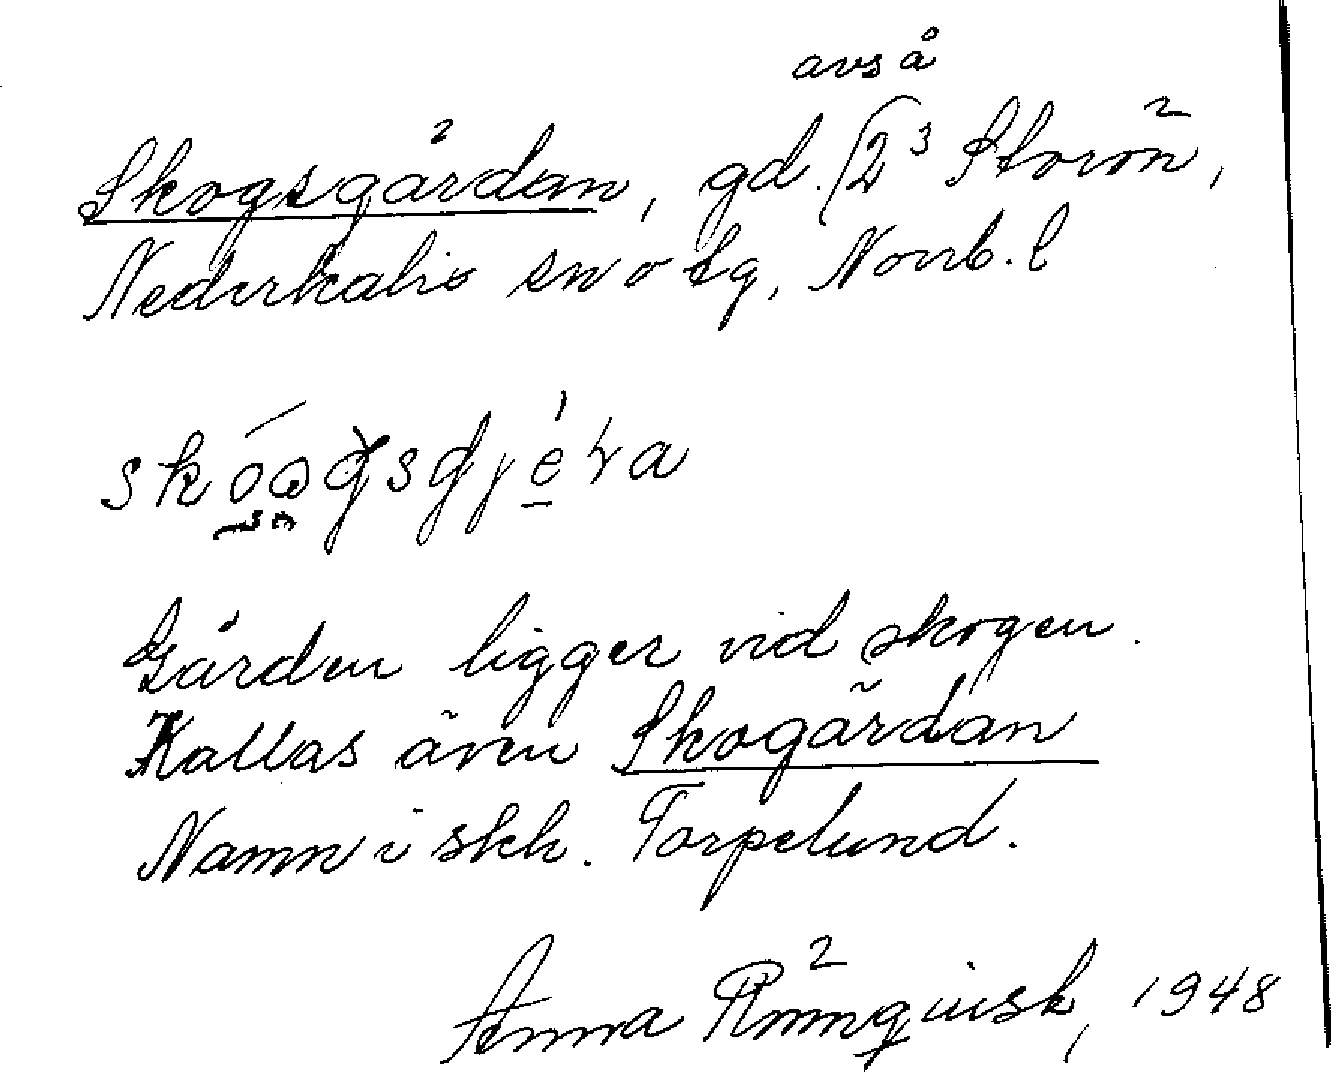 avs å
Skogsgårdan, gd. (2³ Storön,
Nederkalix sn o tg, Norrb. l
Gården ligger vid skogen.
Kallas även Skogårdan
Namn i skh. Torpelund.
Anna Rönnqvist, 1948